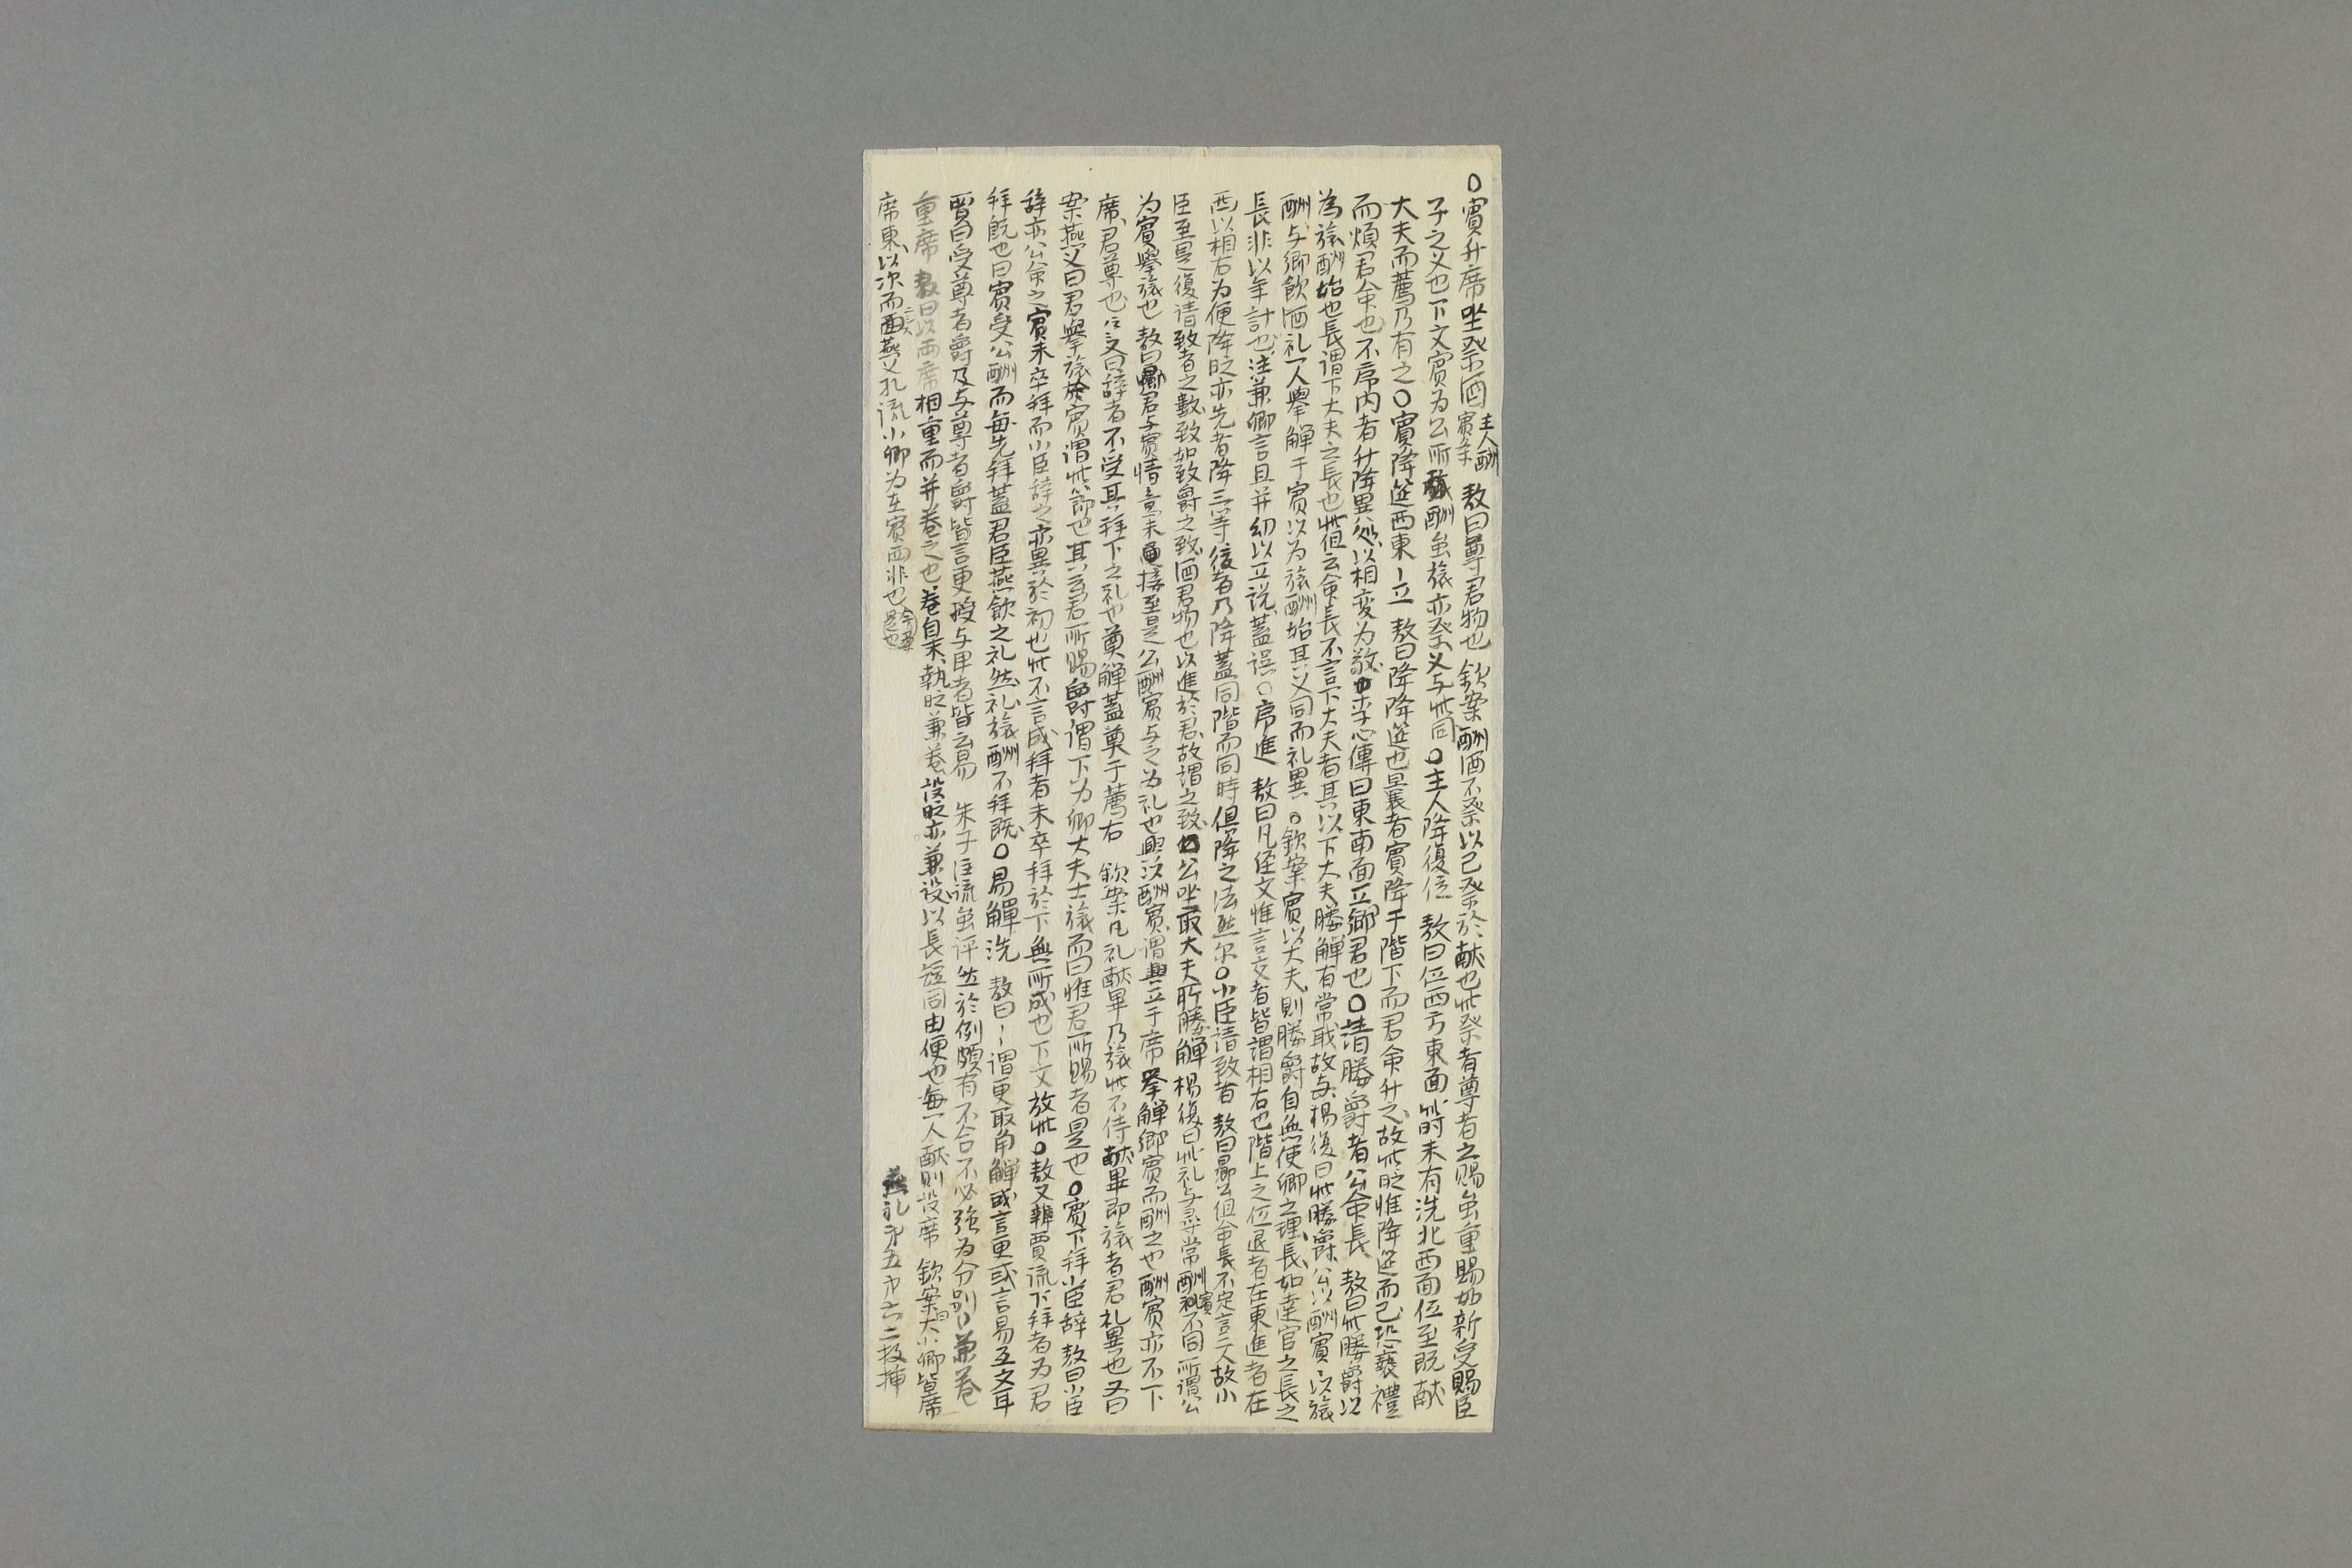 ○賓升席坐祭酒 主人酬賓条 敖曰尊君物也 欽案酬酒不祭以已祭於献也此祭者尊者之賜虽重賜如新受賜臣
子之义也下文賓为公所酬虽旅亦祭义与此同○主人降復位 敖曰位西方東面此時未有洗北西面位至既献
大夫而薦乃有之○賓降筵西東ㄑ立 敖曰降降筵也曩者賓降于階下而君命升之故此時惟降筵而已恐褻禮
而煩君命也不序内者升降異処以相変为敬也李心傳曰東南面立鄉君也○請媵爵者公命長 敖曰此媵爵以
為旅酬始也長謂下大夫之長也此但云命長不言下大夫者其以下大夫媵觶有常職故与楊復曰此媵爵公以酬賓ㄑ以旅
酬与鄉飲酒礼一人舉觶于賓以为旅酬始其义同而礼異○欽案賓以大夫則媵爵自無使卿之理長如達官之長之
長非以年計也注兼卿言且并幼以立说蓋误○序進 敖曰凡經文惟言交者皆謂相右也階上之位退者在東進者在
西以相右为便降時亦先者降三等後者乃降蓋同階而同時但降之法然尔○小臣請致者 敖曰曏公但命長不定言二人故小
臣至是復请致者之數致如致爵之致酒君物也以進於君故謂之致○公坐取大夫所媵觶 楊復曰此礼与尋常酬賓不同所謂公
为賓舉旅也 敖曰曏君与賓情意未接至是公酬賓与之为礼也興以酬賓謂興立于席舉觶鄉賓而酬之也酬賓亦不下
席君尊也 注又曰辞者不受其拜下之礼也奠觶蓋奠于薦右 欽案凡礼献畢乃旅此不待献畢即旅者君礼異也又曰
案燕义曰君舉旅於賓謂此節也其言君所賜爵謂下为卿大夫士旅而曰惟君所賜者是也○賓下拜小臣辞 敖曰小臣
辞亦公命之賓未卒拜而小臣辞之亦異於初也此不言成拜者未卒拜於下無所成也下文放此○敖又辨賈疏下拜者为君
拜既也曰賓受公酬而每先拜蓋君臣燕飲之礼然礼旅酬不拜既○易觶洗 敖曰ㄑ謂更取角觶或言更或言易互文耳
賈曰受尊者爵及与尊者爵皆言更授与卑者皆言易 朱子注疏虽详然於例頗有不合不必強为分别○兼卷
重席 敖曰以兩席相重而并卷之也卷自末執時兼卷設時亦兼设以長短同由便也每一人献則设席 欽案大小卿皆席
席東以次而西燕义孔疏小卿为在賓西非也
燕礼